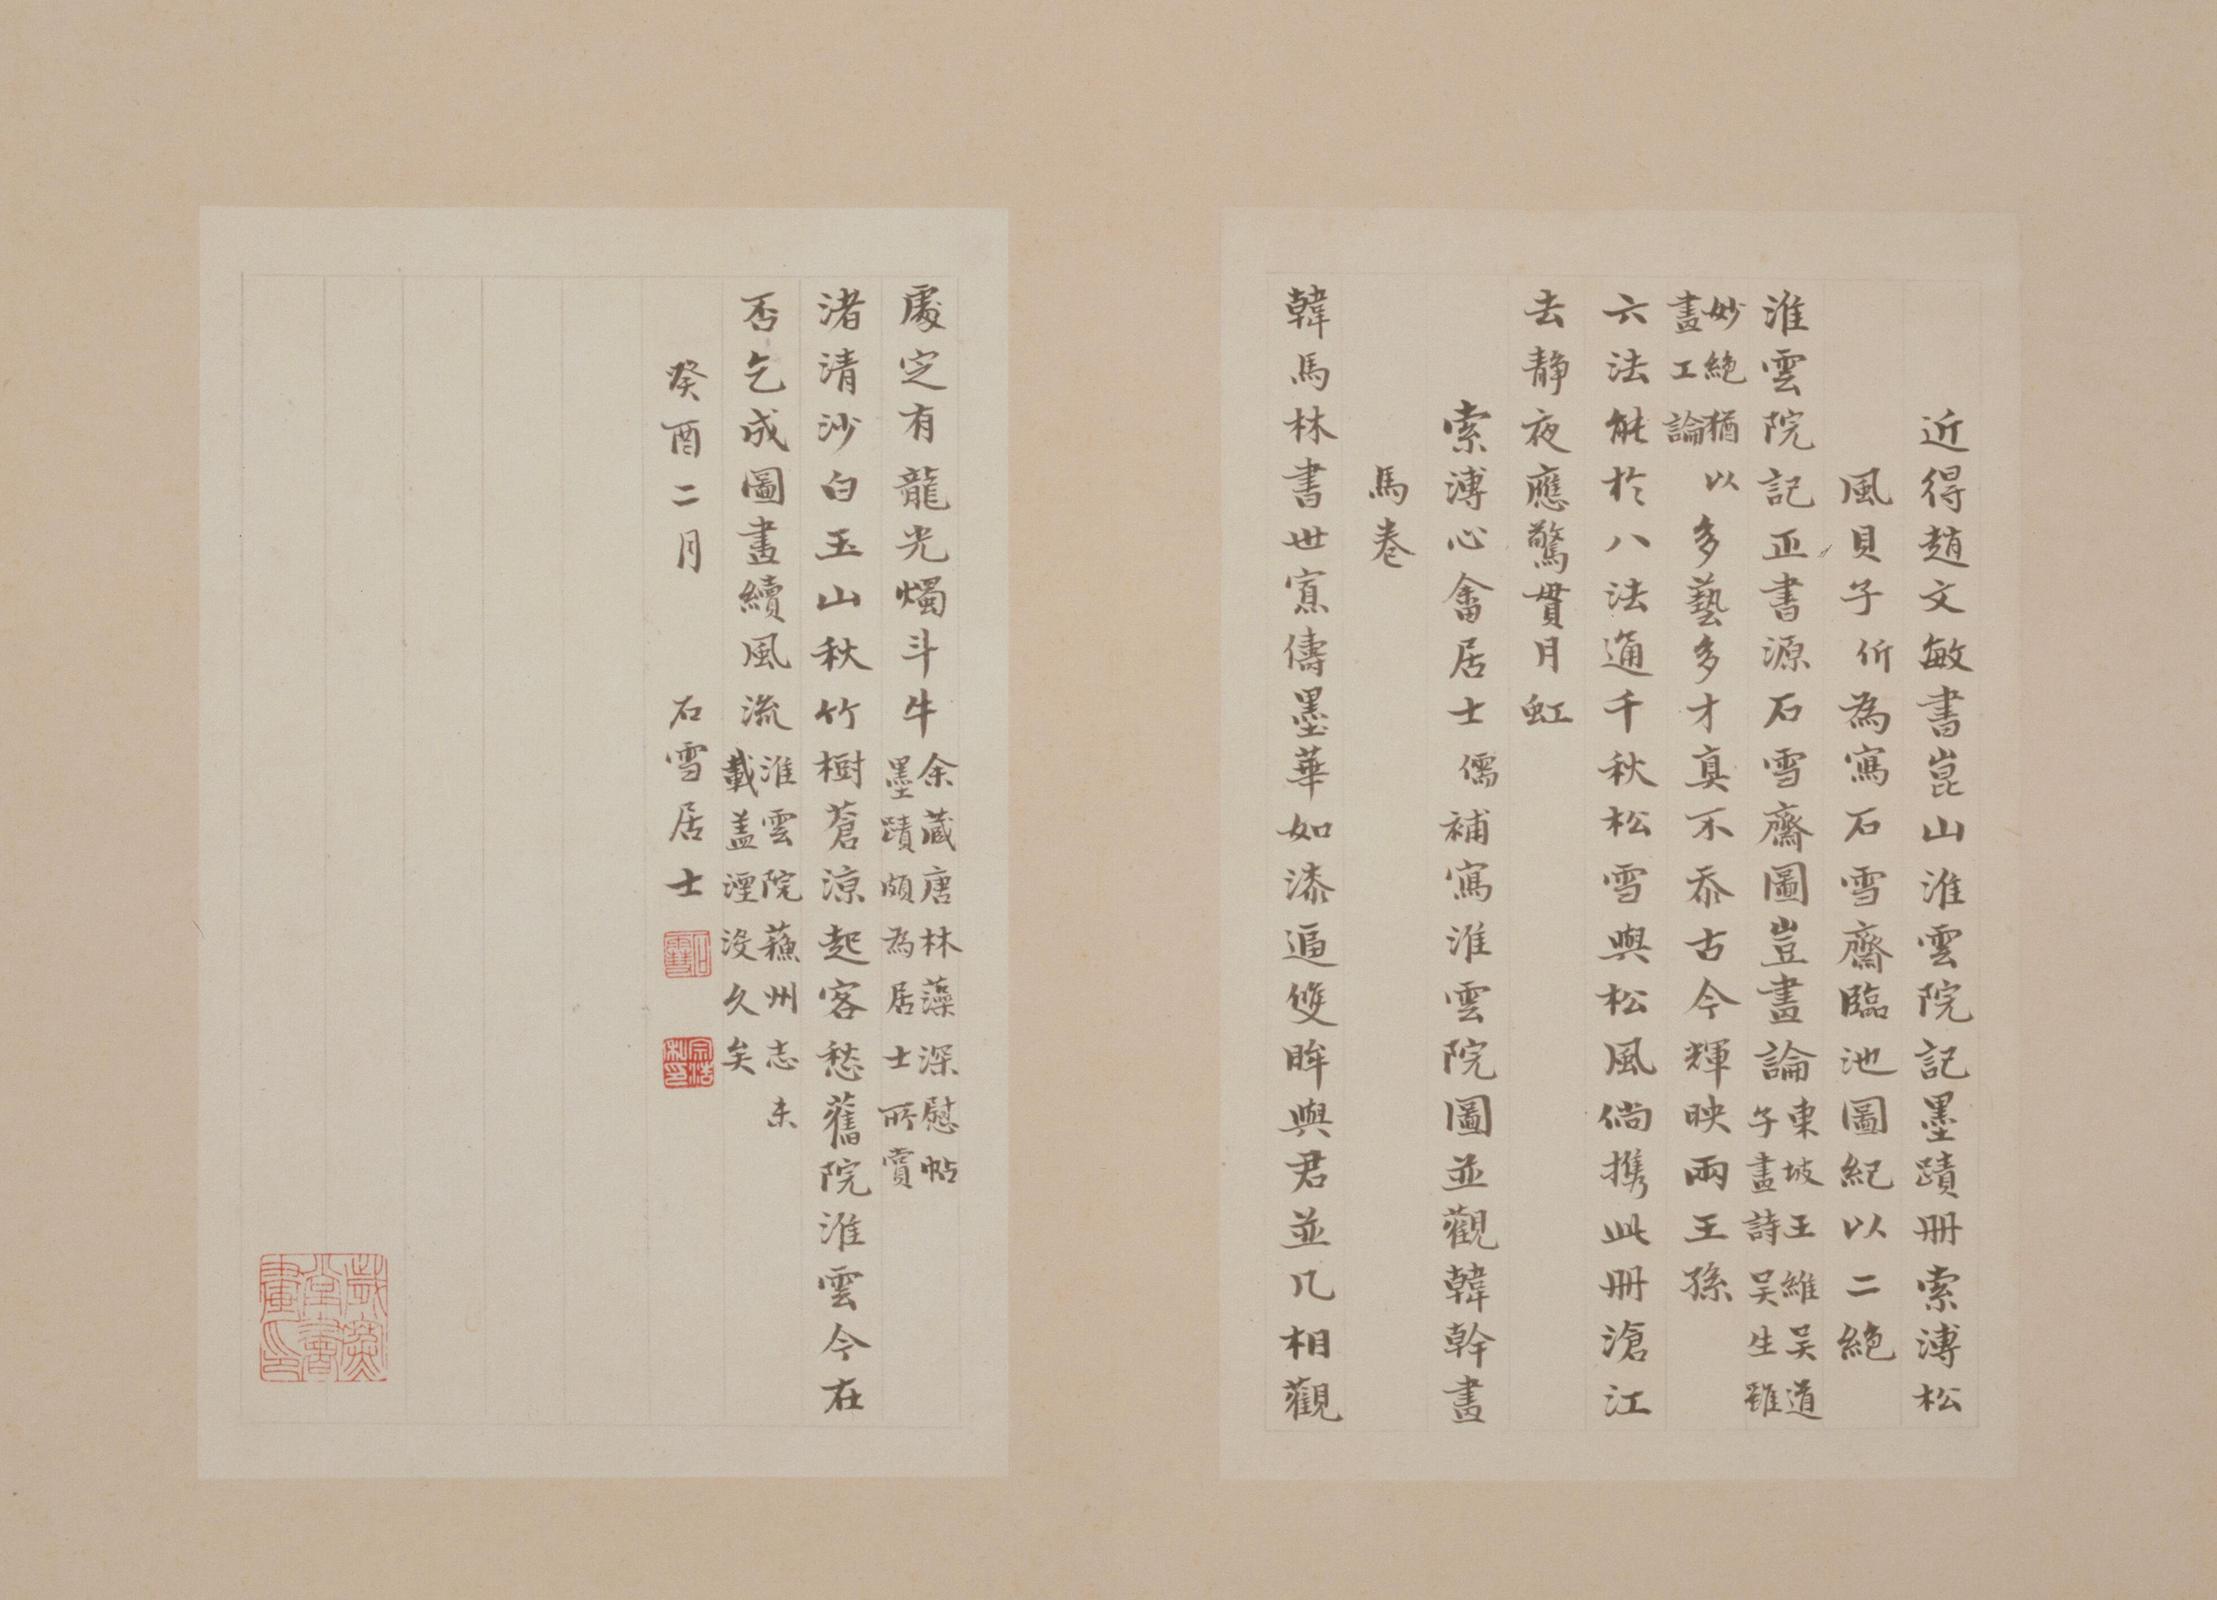 近得趙文敏書崑山淮雲院記墨蹟冊索溥松
風貝子㣲為寫石雪齋臨池圖紀以二絶
淮雲院記正書源石雪齋圖豈畫論東坡王維吳道
子畫詩吳生雖
妙絶猶
畫工論以多藝多才真不忝古今輝映兩王孫
六法能於八法通千秋松雪與松風倘携此冊滄江
去静夜應驚貫月虹
索溥心畬居士儒補寫淮雲院圖並觀韓幹畫
馬卷
韓馬林書世寡儔墨華如漆逼雙眸與君並几相觀
處定有龍光燭斗牛余藏唐林藻深慰帖
墨蹟頗為居士所賞
渚清沙白玉山秋竹樹蒼涼起客愁舊院淮雲今在
否乞成圖畫續風流淮雲院蘓州志未
載盖湮沒久矣
癸酉二月 石雪居士
石雪
宗浩私印